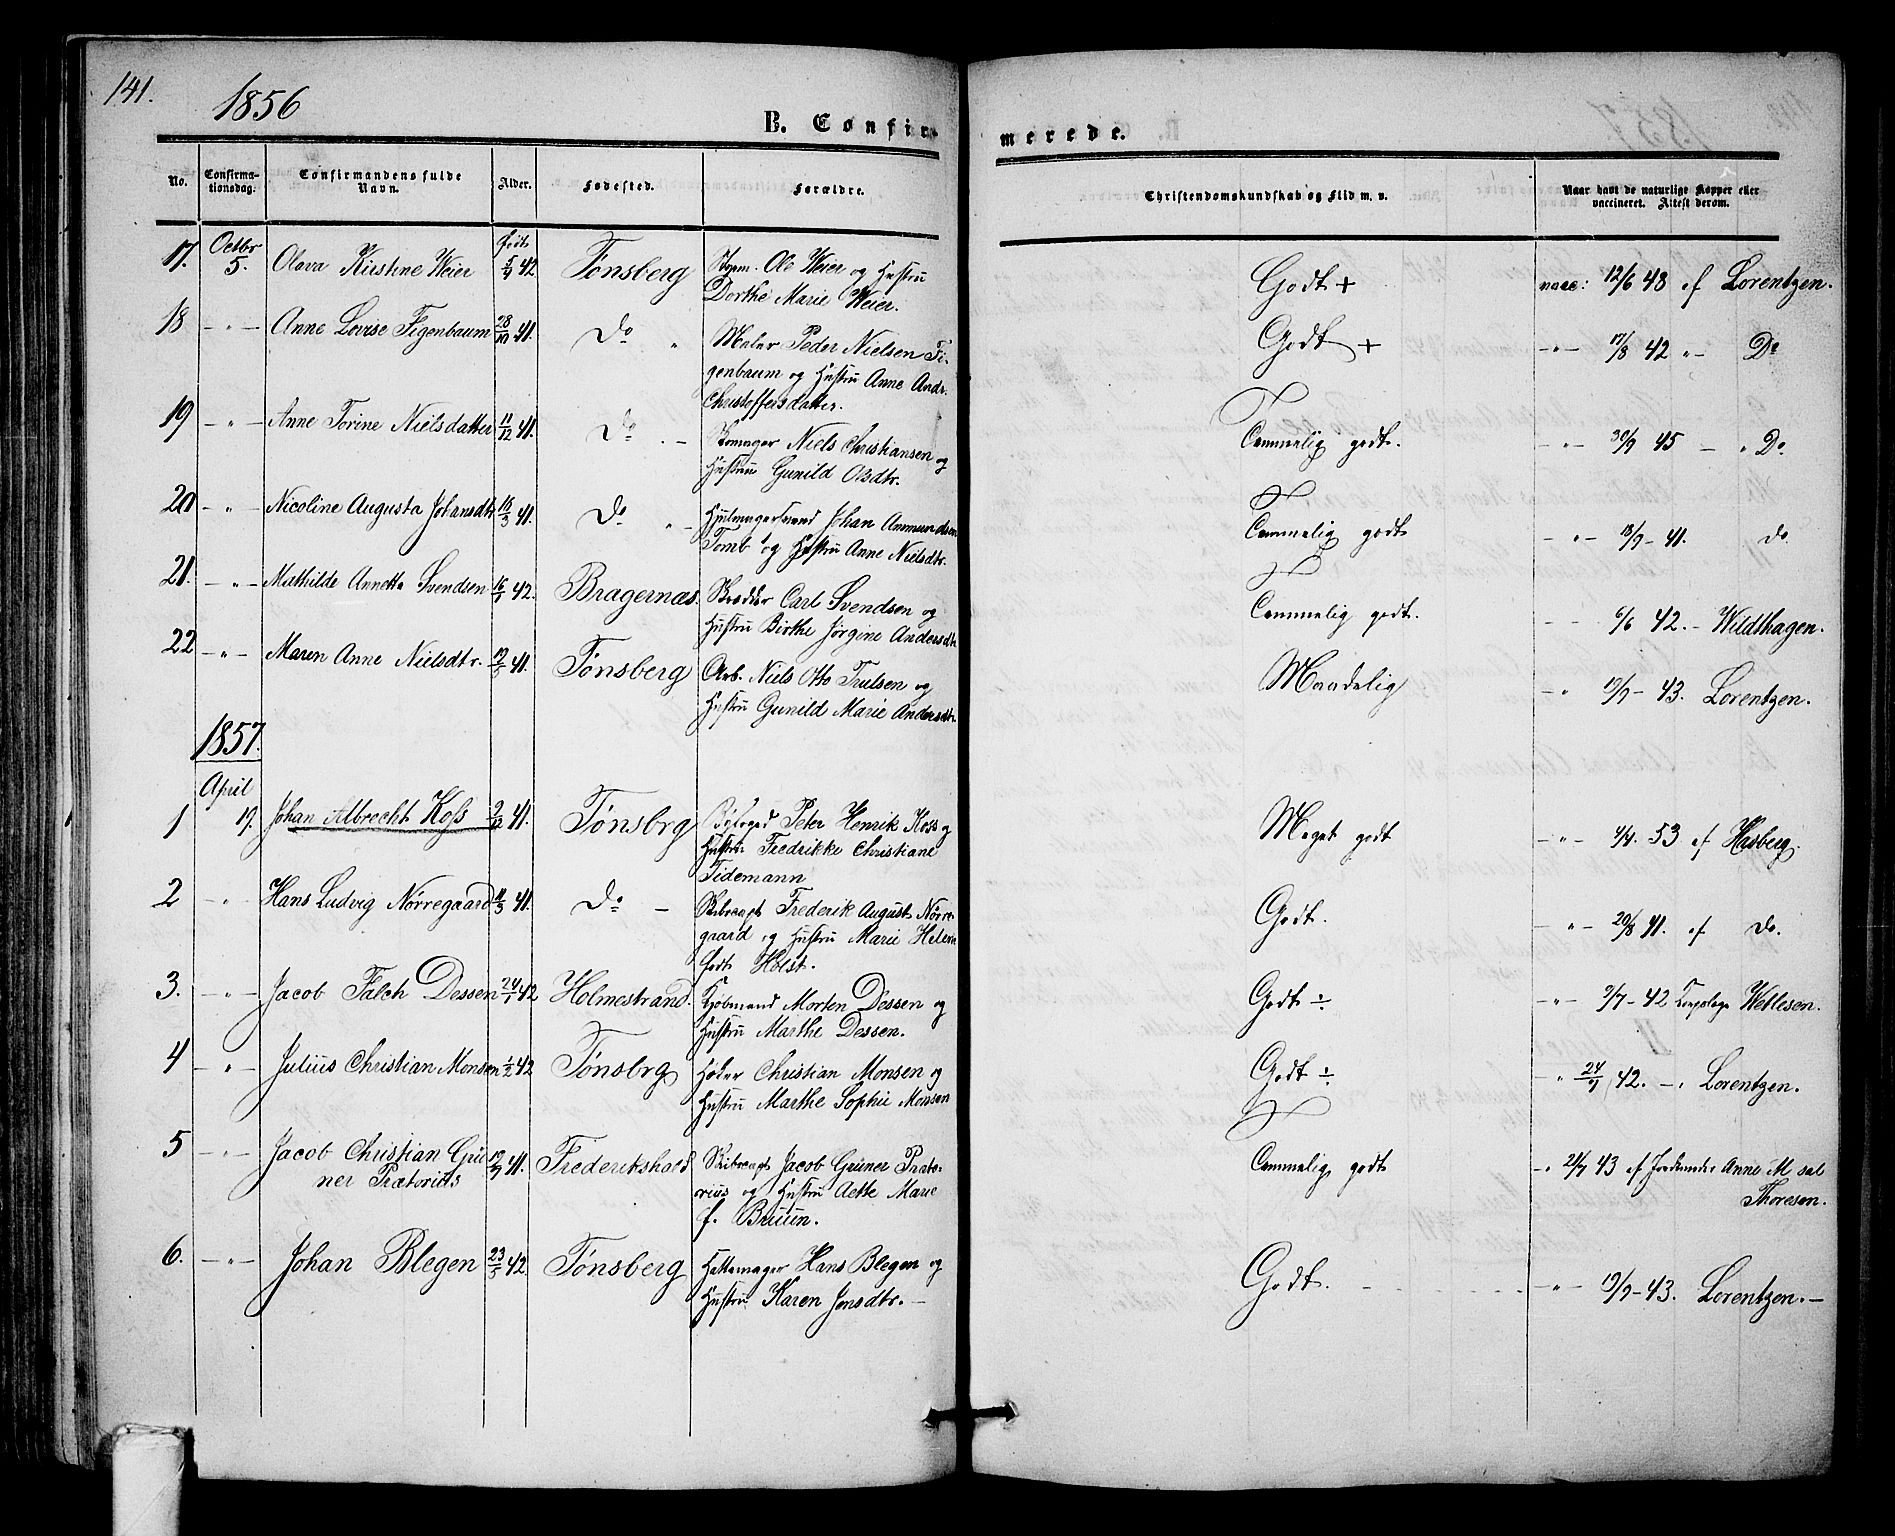 141.
1856
B. Confir-
merede.
No.
Confirma-
tionsdag.
Confirmandens fulde
Navn.
Alder.
Fødested.
Forældre.
Christendomskundskab og Flid m. v.
Naar havt de naturlige Kopper eller
vaccineret. Attest derom.
17. Octbr 5. Olava Kirstine Weier født 5/9 42 Tønsberg Ole Weier og Hustru
Dorthe Marie Weier.
Godt + vacc: 12/6 48 af Lorentzen.
18 - " - Anne Lovise Figenbaum 28/10 41. Do " Maler Peder Nielsen Fi-
genbaum og Hustru Anne Andr.
Christoffersdatter.
Godt + - " - 17/8 42 " - Do
19 - " - Anne Torine Nielsdatter 11/12 41. Do - Skomager Niels Christiansen og
Hustru Gunild Olsdtr.
Temmelig godt. - " - 30/9 45 - " Do
20 - " - Nicoline Augusta Johansdtr 16/3 41. Do " - Hjulmagersvend Johan Ammundsen
Tomb og Hustru Anne Nielsdtr.
Temmelig godt - " - 18/9 - 41. do
21. - " - Mathilde Annette Svendsen 42. Bragernæs. Skrædder Carl Svendsen og
Hustru Birthe Jørgine Andersdtr
Temmelig godt. - - 6/6 42. - Wildthagen.
22 - " - Maren Anne Nielsdtr. 19/5 41. Tønsberg Arb. Niels Otto Trulsen og
Hustru Gunild Marie Andersdtr.
Maadelig - " 19/9 - 43. Lorentzen.
1857.
April
1 19. Johan Albrecht Koss 2/12 41. Tønsbrg Byfoged Peter Henrik Koss og
Hustru Fredrikke Christiane
Tidemann
Meget godt - " - 53 af Hasberg.
2 - " - Hans Ludvig Nørregaard 11/3 41. Do - Skibscapt Frederik August Nørre-
gaard og Hustru Marie Helene
født Holst.
Godt. - " - 20/8 41. af do.
3. - " - Jacob Falch Dessen 24/1 42 Holmestrand. Kjøbmand Morten Dessen og
Hustru Marthe Dessen.
Godt ÷ " - 9/7 - 42 Wetlesen.
4 - " - Julius Christian Monsen 1/2 42 Tønsbrg Christian Monsen og
Hustru Marthe Sophie Monsen
Godt ÷ - " 24/9 42. - " Lorentzen.
5 - " - Jacob Christian Grü-
ner Prætorius 41. Frederikshald Skibscapt Jacob Grüner Præto-
rius og Hustru Aette Marie
f. Bruun.
Temmelig godt - " 21/7 43 af Jordemoder Anne M sal
Thoresen.
6. - " - Johan Blegen 23/5 42. Tønsberg Hattemager Hans Blegen og
Hustru Karen Jensdtr. -
Godt. - " - 19/9 - 43. Lorentzen. -